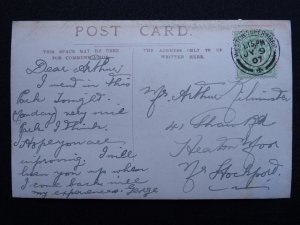 POST CARD
THIS SPACE MAY BE USED
FOR COMMUNICATION.
THE ADDRESS ONLY TO BE
WRITTEN HERE.
1.15 PM
JY 9
07
Dear Arthur
I went in this
Park Tonight
(Sunday) very nice
park I think.
Hope you are
improving. I will
liven you up when
I come back with
my experiences. George
Mr Arthur
41 Shaw Rd
Heaton Moor
Nr Stockport.